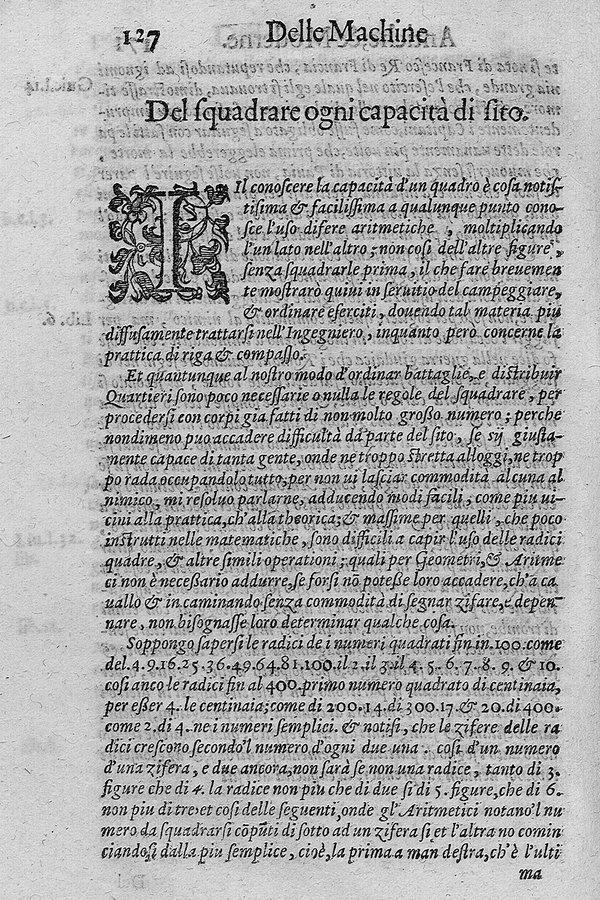 127 Delle Machine
Del ſquadrare ogni capacità di ſito.
Il conoſcere la capacità d'un quadro è coſa notiſ-
tiſima & faciliſſima a qualunque punto cono-
ſce l'uſo difere aritmetiche , moltiplicando
l'un lato nell'altro ; non coſi dell'altre figure ,
ſenza ſquadrarle prima , il che fare breuemen
te moſtrarò quiui in ſeruitio del campeggiare,
& ordinare eſerciti , douendo tal materia piu
diffuſamente trattarſi nell'Ingegniero , inquanto però concerne la
prattica di riga & compaſſo.
Et quantunque al noſtro modo d'ordinar battaglie, e diſtribuir
Quartieri ſono poco neceſſarie o nulla le regole del ſquadrare , per
procederſi con corpi gia fatti di non molto großo numero ; perche
nondimeno puo accadere difficultà da parte del ſito , ſe ſij giuſta-
mente capace di tanta gente, onde ne troppo ſtretta alloggi, ne trop
po rada occupandolo tutto, per non ui laſciar commodità alcuna al
nimico , mi reſoluo parlarne, adducendo modi facili , come piu ui-
cini alla prattica, ch'alla theorica; & maſſime per quelli , che poco
inſtrutti nelle matematiche , ſono difficili a capir l'uſo delle radici
quadre , & altre ſimili operationi ; quali per Geometri, & Aritme
ci non è neceßario addurre, ſe forſi nō poteße loro accadere, ch'a ca
uallo & in caminando ſenza commodità di ſegnar zifare, e depen-
nare , non biſognaſſe loro determinar qualche coſa.
Soppongo ſaperſi le radici de i numeri quadrati fin in.100. come
del.4.9.16.25.36.49.64.81.100. il 2. il 3. il 4. 5. 6. 7. 8. 9. & 10.
coſi anco le radici fin al 400. primo numero quadrato di centinaia,
per eßer 4. le centinaia; come di 200. 14. di 300. 17. & 20. di 400.
come 2. di 4. ne i numeri ſemplici. & notiſi , che le zifere delle ra
dici creſcono ſecondo'l numero d'ogni due una . coſi d'un numero
d'una zifera, e due ancora, non ſarà ſe non una radice , tanto di 3.
figure che di 4. la radice non piu che di due ſi di 5. figure, che di 6.
non piu di tre: et coſi delle ſeguenti, onde gl'Aritmetici notano'l nu
mero da ſquadrarſi cō pūti di ſotto ad un zifera ſi et l'altra no comin
ciandoſi dalla piu ſemplice , cioè, la prima a man deſtra, ch'è l'ulti
ma